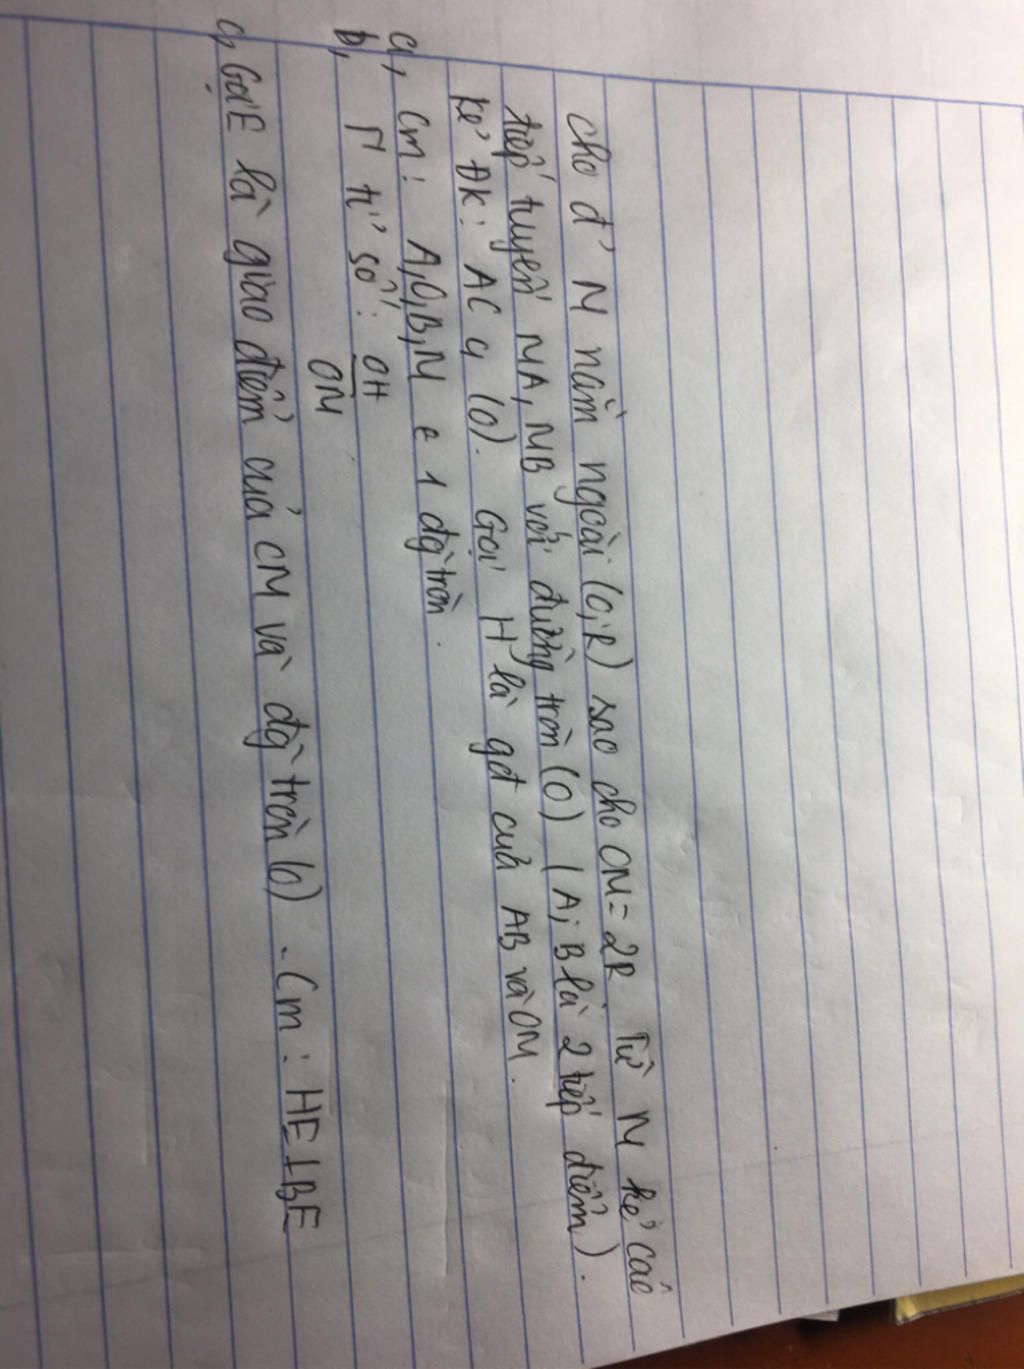 cho đ' M nằm ngoài (O;R) sao cho OM=2R Từ M kẻ các
tiếp tuyến MA, MB với đường tròn (O) (A; B là 2 tiếp điểm).
kẻ ĐK: AC of (O). Gọi H là gđ của AB và OM.
a, Cm: A,O,B,M e 1 đg tròn.
b, tỉ số: OH
OM
c, Gọi E là giao điểm của CM và đg tròn (O). Cm: HE⊥BE